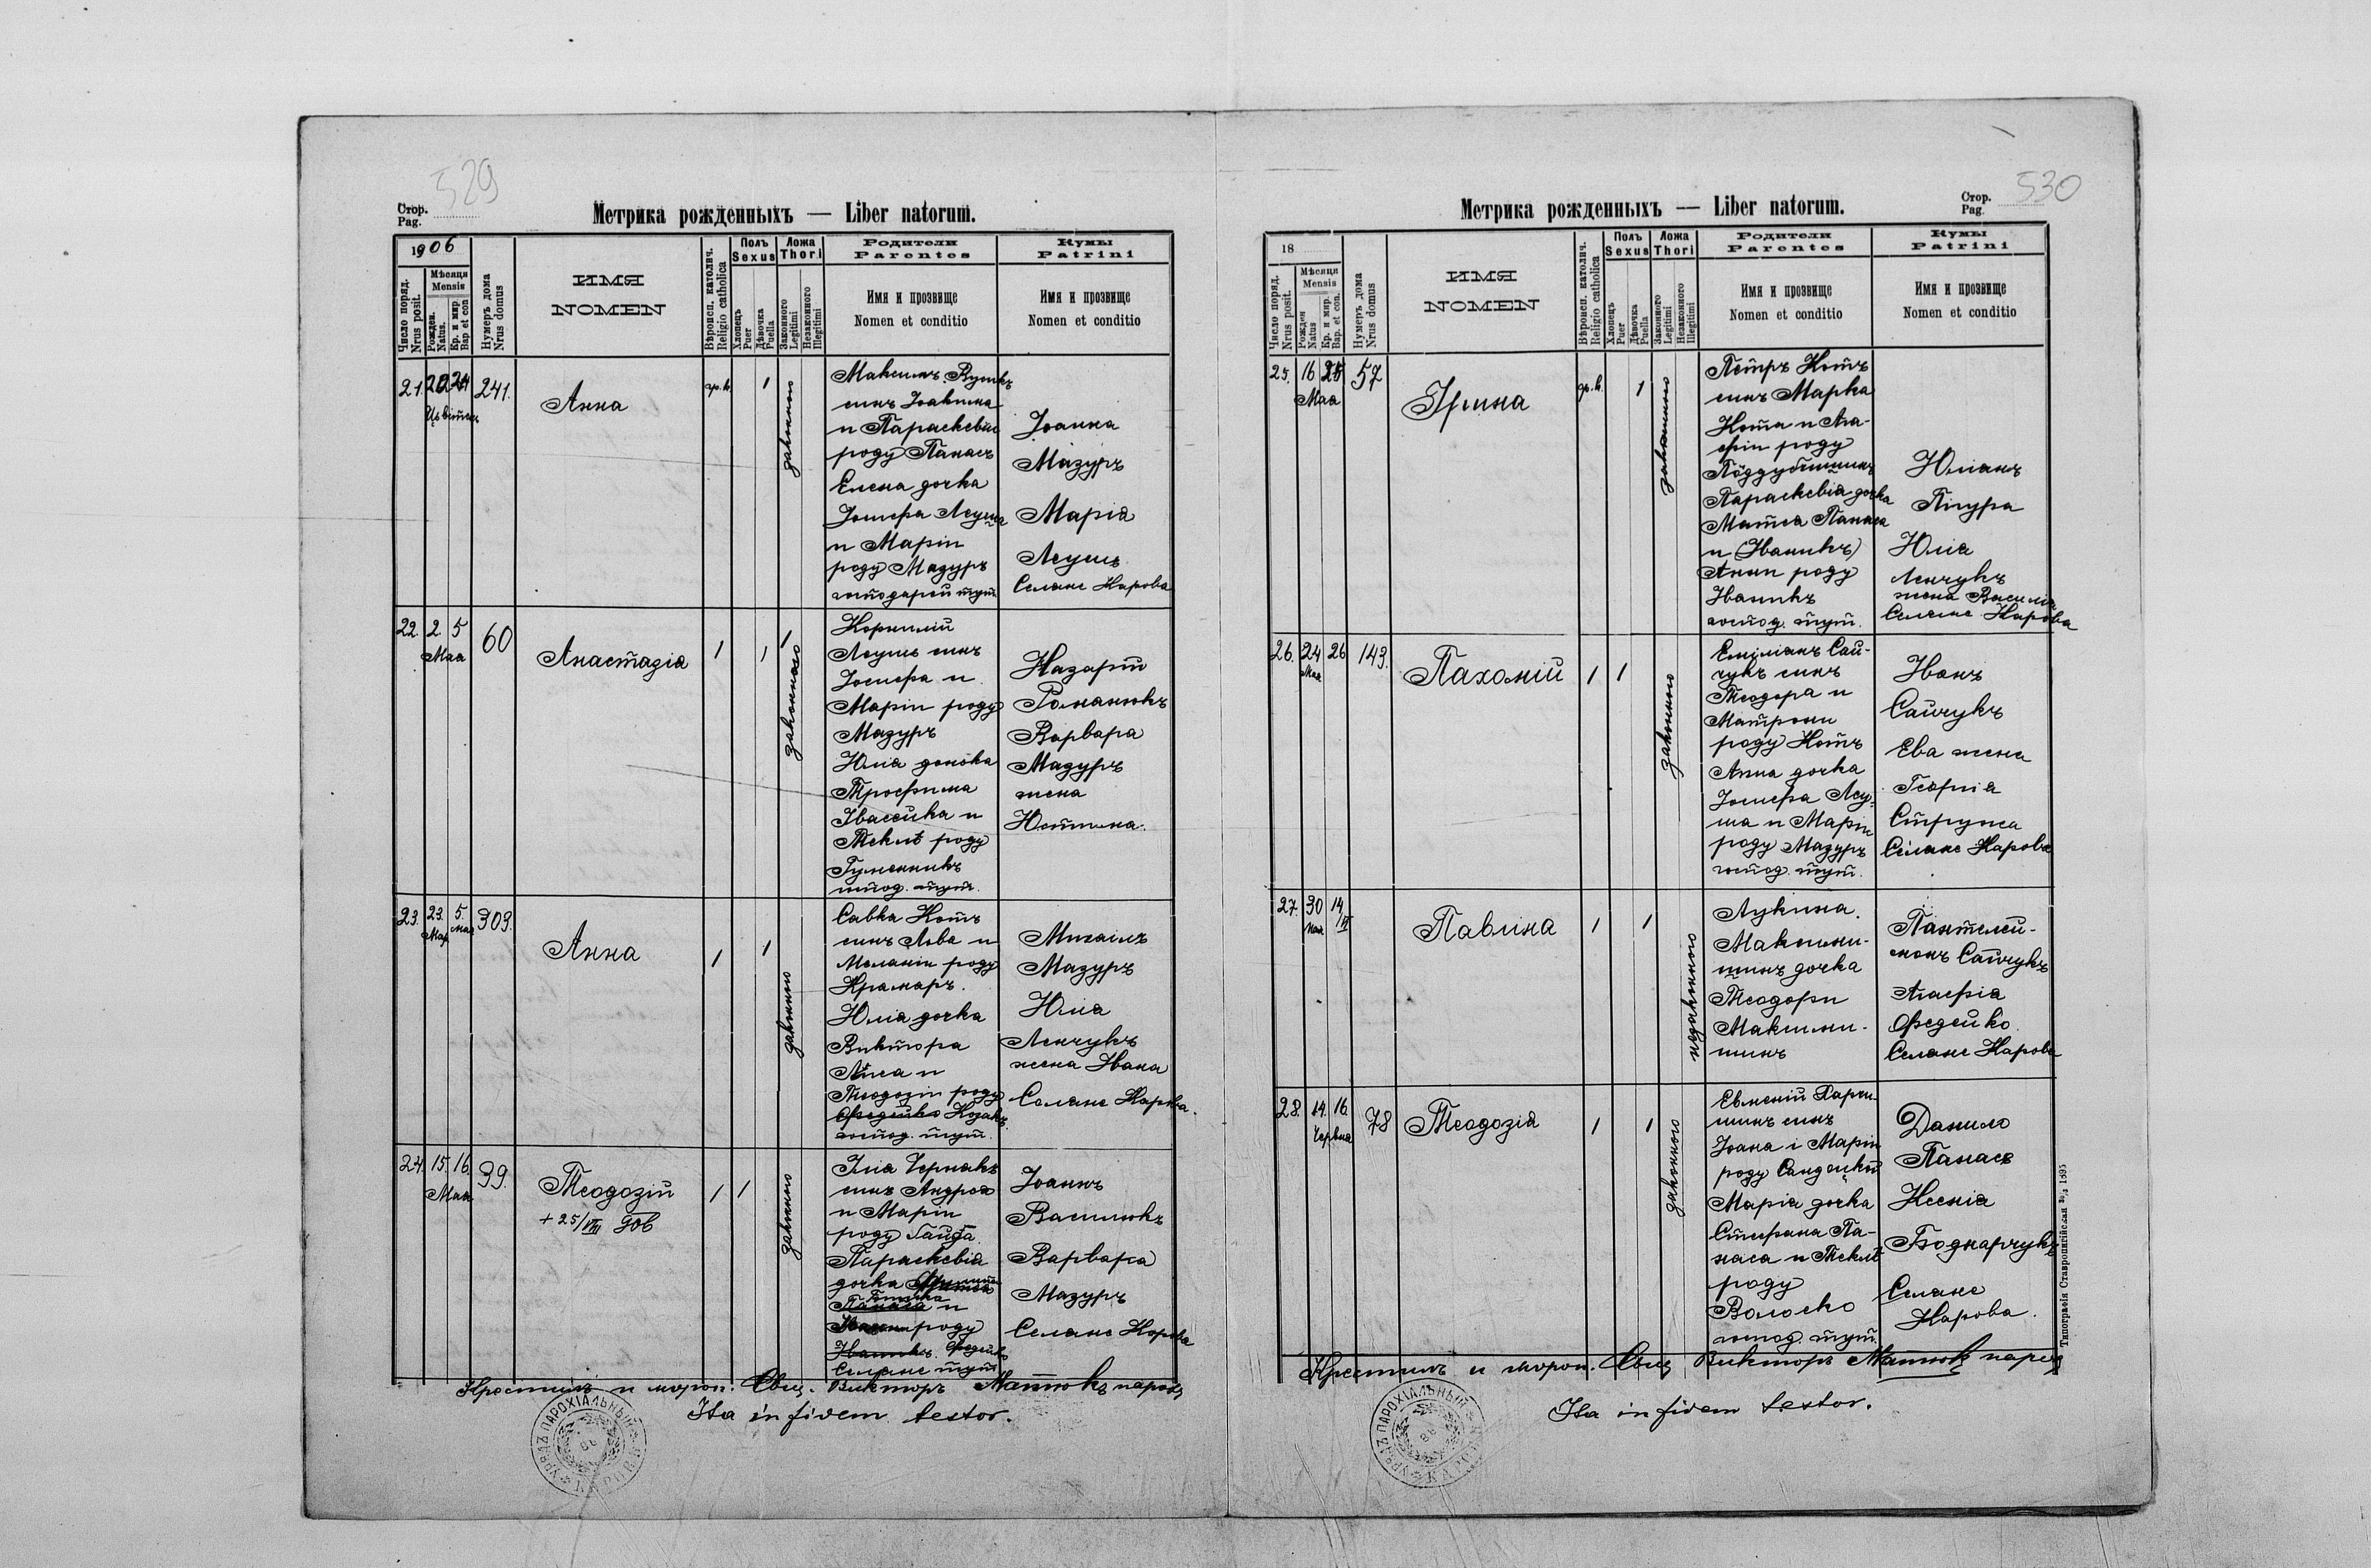 529
Стор.
Pag.
Метрика рожденныхъ — Liber natorum.
1906
Число поряд.
Nrus posit.
Мѣсяця
Mensis
Рожден.
Natus.
Кр. и мир.
Bap et con
Нумеръ дома
Nrus domus
ИМЯ
NOMEN
Вѣроисп. католич.
Religio catholica
Полъ
Sexus
Хлопецъ
Puer
Дѣвочка
Puella
Ложа
Thori
Законного
Legitimi
Незаконного
Illegitimi
Родители
Parentes
Имя и прозвище
Nomen et conditio
Кумы
Patrini
Имя и прозвище
Nomen et conditio
21. 24 241.
Анна
гр. к.
1
законного
Максимъ
сынъ Іоакима
и Параскевіи
роду Панасъ
Елена дочка
Іосифа Лсуша
и Маріи
роду Мазуръ
господареи тут.
Іоанна
Мазуръ
Марія
Лсушъ
Селяне Карова
22. 2. 5 60
Мая
Анастазія
1 1 1
законного
Корнилій
Лсушъ сынъ
Іосифа и
Маріи роду
Мазуръ
Юлія
Трофима
Івасейка и
Теклѣ роду
Гуменникъ
господ. тут.
Назарій
Романюкъ
Варвара
Мазуръ
жена
Юстина.
23. 23. 5. 303.
Мар мая
Анна
1 1
законного
Савка Котъ
сынъ Льва и
Меланіи роду
Крамаръ.
Юлія дочка
Виктора
Лиса и
Теодозіи роду
Федейко Козакъ
господ. тут.
Михаилъ
Мазуръ
Юлія
Ленчукъ
жена Ивана
Селяне Карова.
24. 15. 16. 99.
Мая
Теодозій
+ 25/VIII 906
1 1
законного
Илія Чернакъ
сынъ Андрея
и Маріи
роду Гайда
Параскевія
дочка
Панаса и
роду
Іваникъ. Федейко
Селяне тут.
Іоаннъ
Василюкъ
Варвара
Мазуръ
Селяне Карова
Крестилъ и миропом. Свящ. Викторъ Матюкъ парох
Ita in fidem testor.
УРЯДЪ ПАРОХІАЛЬНЫЙ
КАРОВЪ
530
Стор.
Pag.
Метрика рожденныхъ — Liber natorum.
18
Число поряд.
Nrus posit.
Мѣсяця
Mensis
Рожден
Natus
Кр. и мир.
Bap. et con.
Нумеръ дома
Nrus domus
ИМЯ
NOMEN
Вѣроисп. католич.
Religio catholica
Полъ
Sexus
Хлопецъ
Puer
Дѣвочка
Puella
Ложа
Thori
Законного
Legitimi
Незаконного
Illegitimi
Родители
Parentes
Имя и прозвище
Nomen et conditio
Кумы
Patrini
Имя и прозвище
Nomen et conditio
25. 16 25 57
Мая
Ірина
гр. к.
1
законного
Петръ Котъ
сынъ Марка
Кота и Ага-
фіи роду
Параскевія дочка
Матея Панаса
и (Іваникъ)
Анни роду
Іваникъ
господ. тут.
Юліанъ
Пігура
Юлія
Ленчукъ
жена Василія
Селяне Карова
26. 24 26 143.
Мая
Пахомій
1 1
законного
Еміліанъ Сай-
чукъ сынъ
Теодора и
Матрони
роду Котъ
Анна дочка
Іосифа Лсу-
ша и Маріи
роду Мазуръ
господ. тут.
Иванъ
Сайчукъ
Ева жена
Георгія
Струпа
Селяне Карова
27. 30 14
мая VI
Павлина
1 1
незаконного
Лукина
Максими-
шинъ дочка
Теодори
Максими-
шинъ
Пантелей-
монъ Сайчукъ
Агафія
Федейко.
Селяне Карова
28. 14. 16. 78
Червня
Теодозія
1 1
законного
Евгеній Харчи-
шинъ сынъ
Іоана і Маріи
роду
Марія дочка
Стефана Па-
наса и Теклѣ
роду
Волоско
господ. тут.
Данило
Панасъ
Ксенія
Боднарчукъ
Селяне
Карова.
Крестилъ и миропом. Свящ Викторъ Матюкъ парох
Ita in fidem testor.
УРЯДЪ ПАРОХІАЛЬНЫЙ
КАРОВЪ
Типографія Ставропигійская 1895